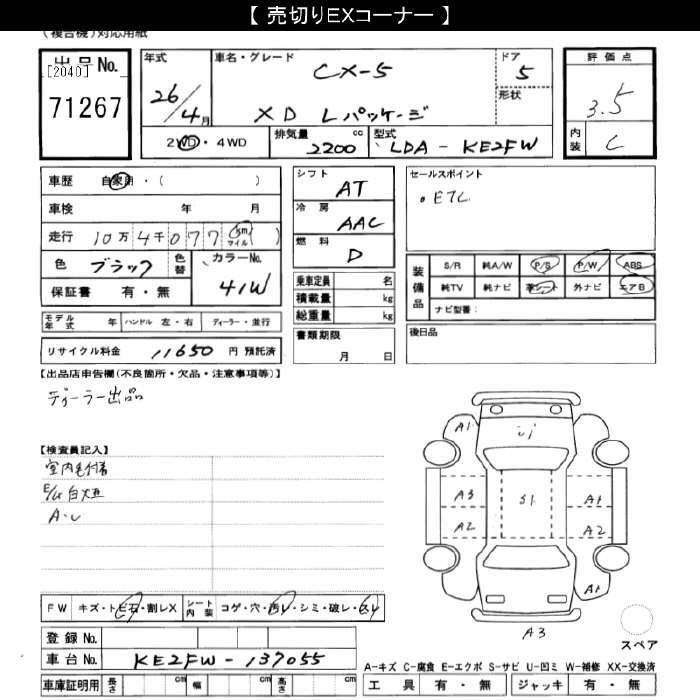 【 売切りEXコーナー 】
(複合機)対応用紙
出品No. [2040] 71267
年式 26/4月
車名・グレード CX-5
XD Lパッケージ
ドア 5
形状
評価点 3.5
内装 C
2WD・4WD
排気量 2200 cc
型式 LDA - KE2FW
車歴 自家用・( )
車検 年 月
走行 10万4千077 km マイル ( )
色 ブラック 色替 カラーNo. 41W
保証書 有・無
モデル年式 年 ハンドル 左・右 ディーラー・並行
リサイクル料金 11650 円 預託済
シフト AT
冷房 AAC
燃料 D
乗車定員 名
積載量 kg
総重量 kg
書類期限 月 日
セールスポイント
・ETC
装備品 S/R 純A/W P/S P/W ABS
純TV 純ナビ 革シート 外ナビ エアB
ナビ型番:
後日品
【出品店申告欄(不良箇所・欠品・注意事項等)】
ディーラー出品
【検査員記入】
室内毛付着
A1
S1
A3
A1
A2
A2
A1
A3
スペア
FW キズ・トビ石・割レX シート内装 コゲ・穴・汚レ・シミ・破レ・スレ
登録No.
車台No. KE2FW - 137055
車庫証明用 長さ cm 幅 cm 高さ cm
A-キズ C-腐食 E-エクボ S-サビ U-凹ミ W-補修 XX-交換済
工具 有・無 ジャッキ 有・無